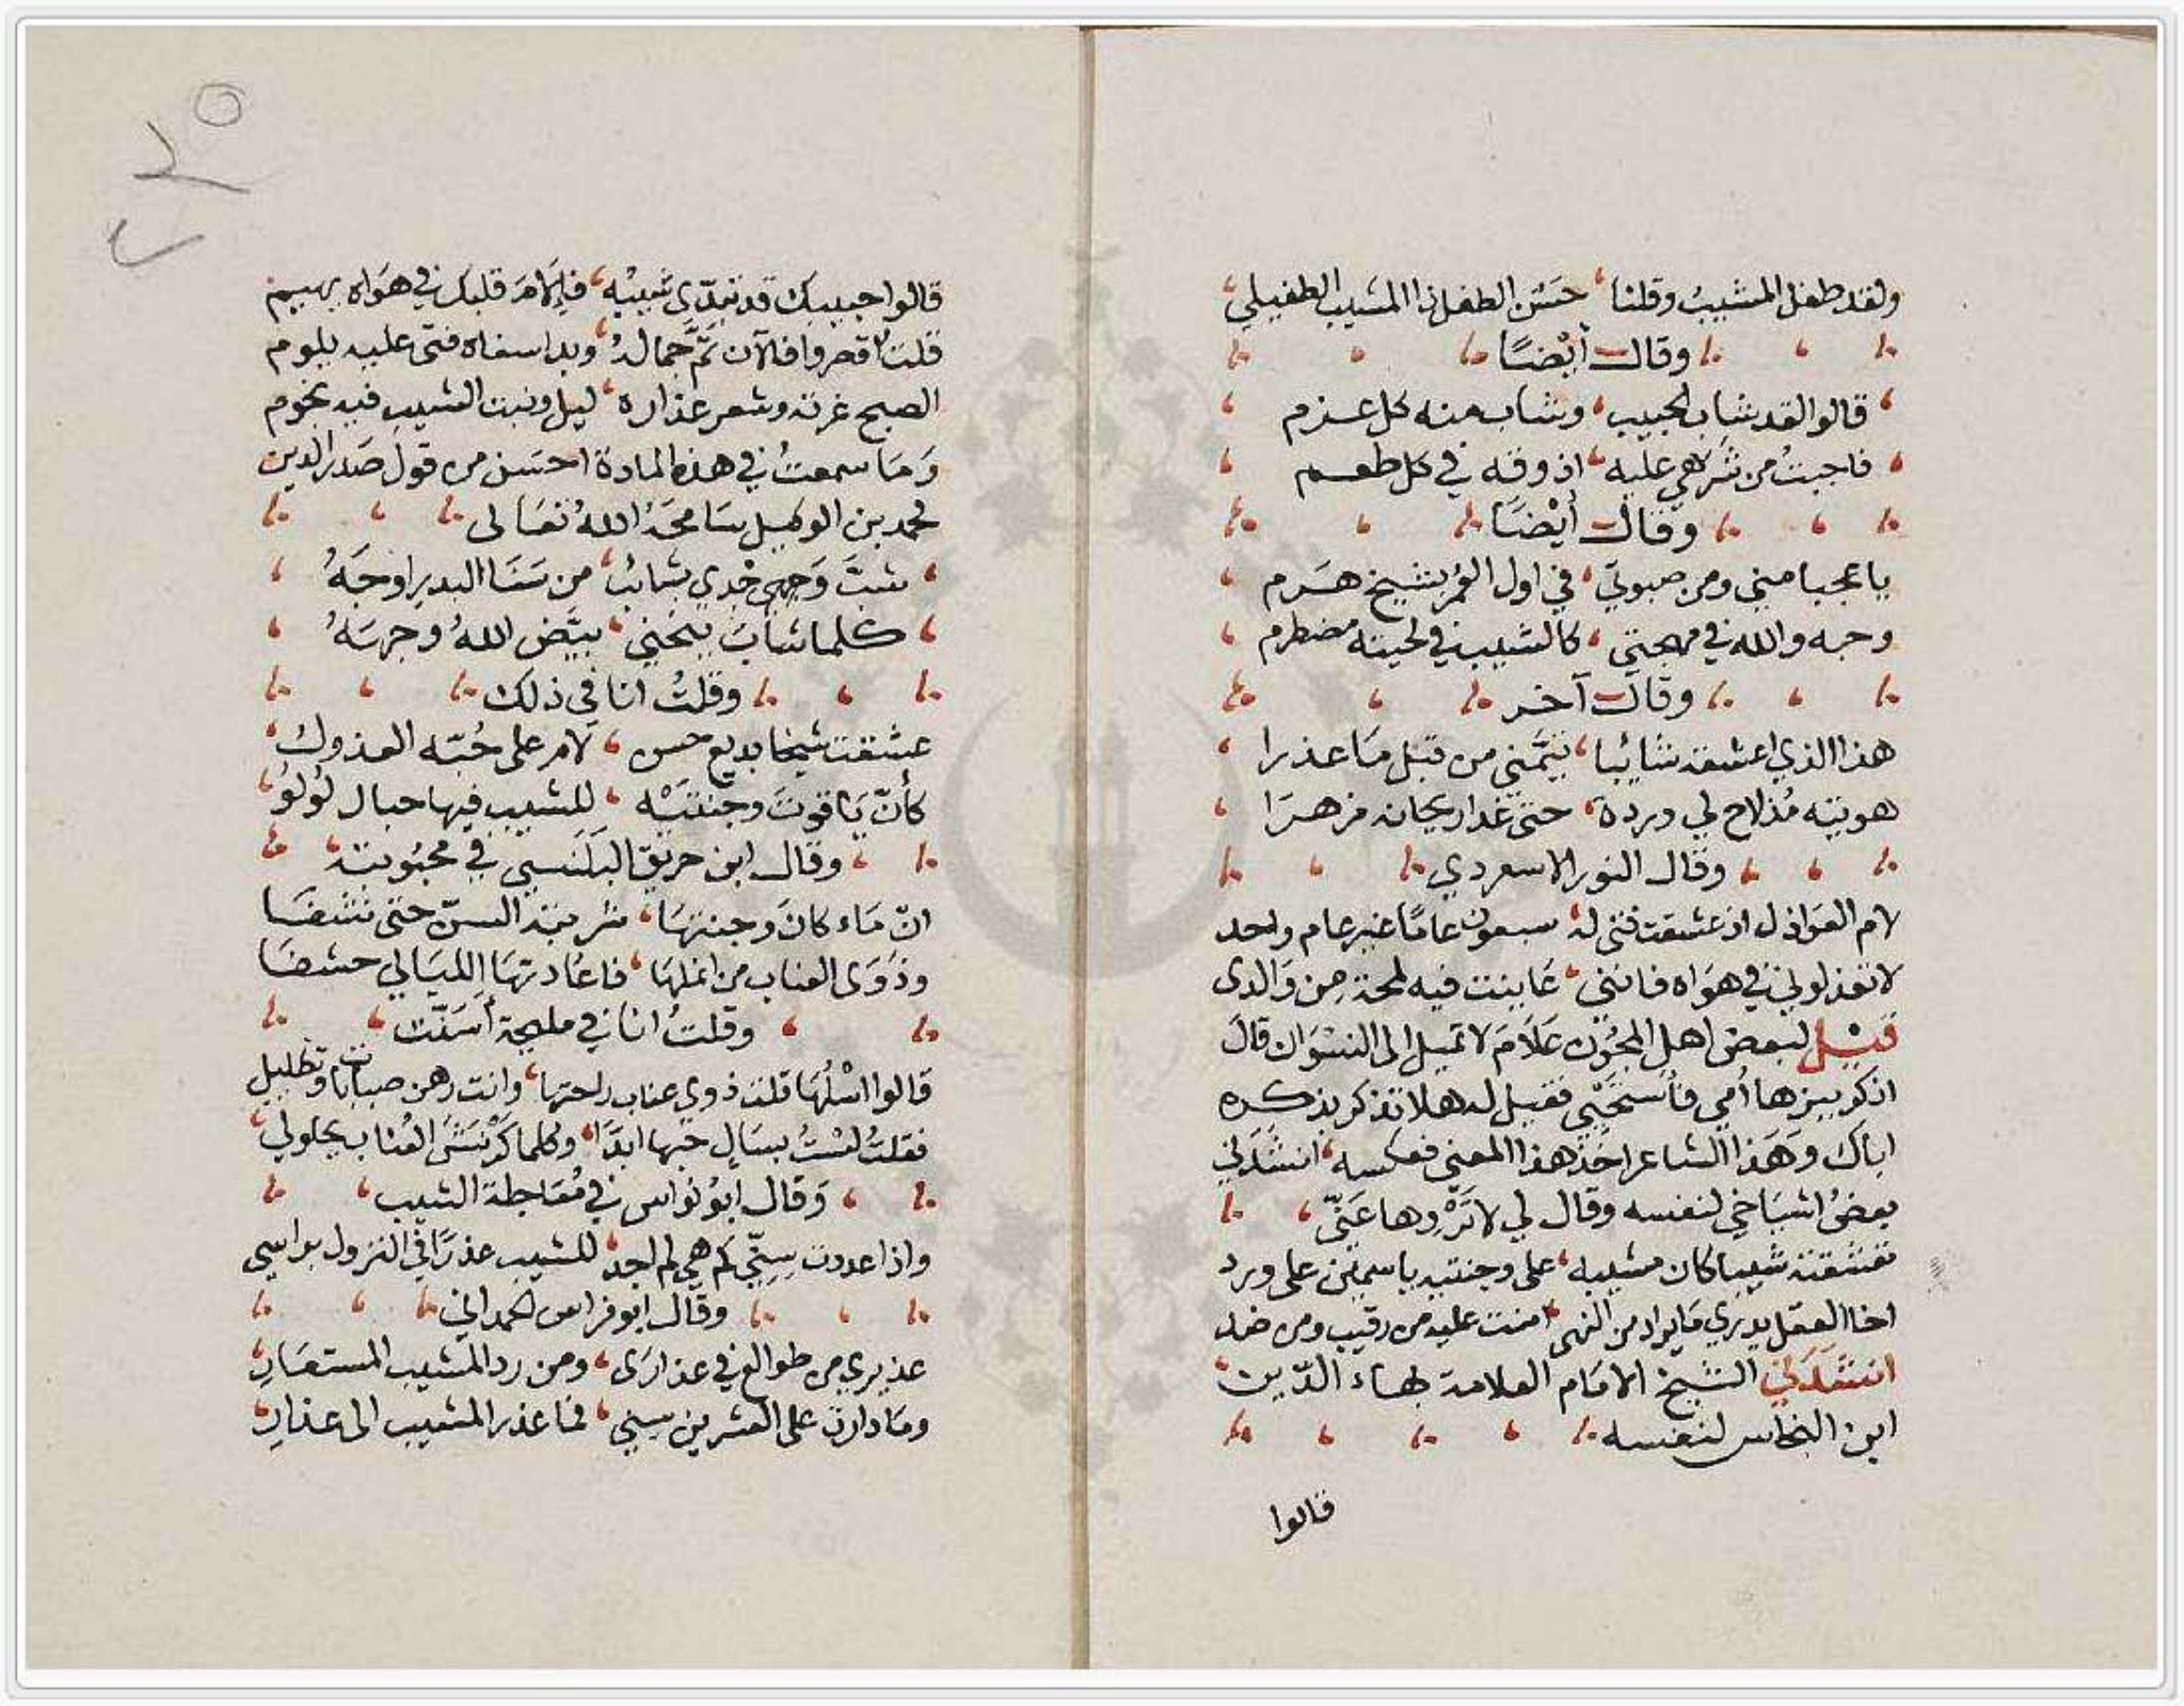 ولقد طفل المشيب وقلنا، حَسَن الطفل ذا المشيب الطفيلي،
وقال أيْضًا
قالوا لقد شاب الحبيب، وشاب منه كل عزم
فاجبتُ من شَرَهي عليه، اذوقه في كل طعم
وقال أيْضًا
يا عجبا مني ومن صبوتي، في اول العُمر بشيخ هَرم
وحبه والله في مهجتي، كالشيب في لحيته مضطرم
وقال آخر
هذا الذي اعشقه شائبا، تيَّمني من قبل مَا عذرا
هويته مُذ لاح لي وردة، حتى غدا ريحانه مزهرَا
وقال النور الاسعردي
لام العَواذل اذ عشقت فتى له، سبعون عامًا غير عام واحد
لا تعذلوني في هوَاه فانني، عَاينت فيه لمحة مِن وَالدي
قيْل لبعض اهل المجُون عَلَامَ لا تميل الى النسْوَان قالَ
اذكر بيزها أمي فأستحْيي فقيل له هلا تذكر بذكره
اباك وهَذا الشاعر اخَذ هذا المعنى فعكسه، انشدَني
بعضُ اشيَاخي لنفسه وقال لي لا تَرْوها عَنّي،
تعشقته شيبا كان مشيبه، على وجنتيه ياسمين على ورد
اخا العقل يدري مَا يراد من النهى، امنت عليه من رقيب ومن ضد
انشَدَني الشيخ الامَام العلامة بهاء الدّين
ابن النحاس لنفسه
قالوا
قالوا حبيبك قد تبدّى شيبه، فإلَامَ قلبك في هوَاه يهيم
قلتُ اقصروا فالآن تمَّ جمالهُ، وبدا سفاه فتى عليه يلوم
الصبح غرته وشعر عذاره، ليل ونبت الشيب فيه نجوم
وَمَا سمعتُ في هذه المادة احسَن من قول صَدر الدين
محمد بن الوكيل سَامحَهُ اللهُ تعَالى
شبَّ وَجدي بشائب، من سَنَا البدر اوجَهُ
كلما شابَ ينحني، بيَّض اللهُ وجهَهُ
وقلتُ انا في ذلك
عشقت شيخا بديع حسن، لام على حُبّه العذول،
كأنّ يَاقوتَ وجنتيْه، للشيب فيها حبال لُولُو،
وقال ابن حريق البَلَنسي في محبُوبته
انّ مَاء كانَ وجنتهَا، شربته السنّ حتى نشفَا
وذَوَى العناب من انملهَا، فاعَادتهَا الليَالي حشفَا
وقلتُ انا في مليحة أسَنّت
قالوا اسْلُهَا قلت ذوي عناب راحتها، وانت رهن صبابات وتظليل
فقلتُ لسْتُ بسَالٍ حبها ابدًا، وكلما كرْمَشَ العُناب يحلو لي،
وَقال ابوُ نوَاس في مُغَالطة الشيب
واذا عددت سِنِّي كم هي لم اجد، للشيب عذرًا في النزول براسي
وقال ابو فراس الحمداني
عذيري من طوالع في عذارَى، ومن رد المشيب المستعَارِ،
ومَا دارت على العشرين سِني، فما عذر المشيب الى عذارِ،